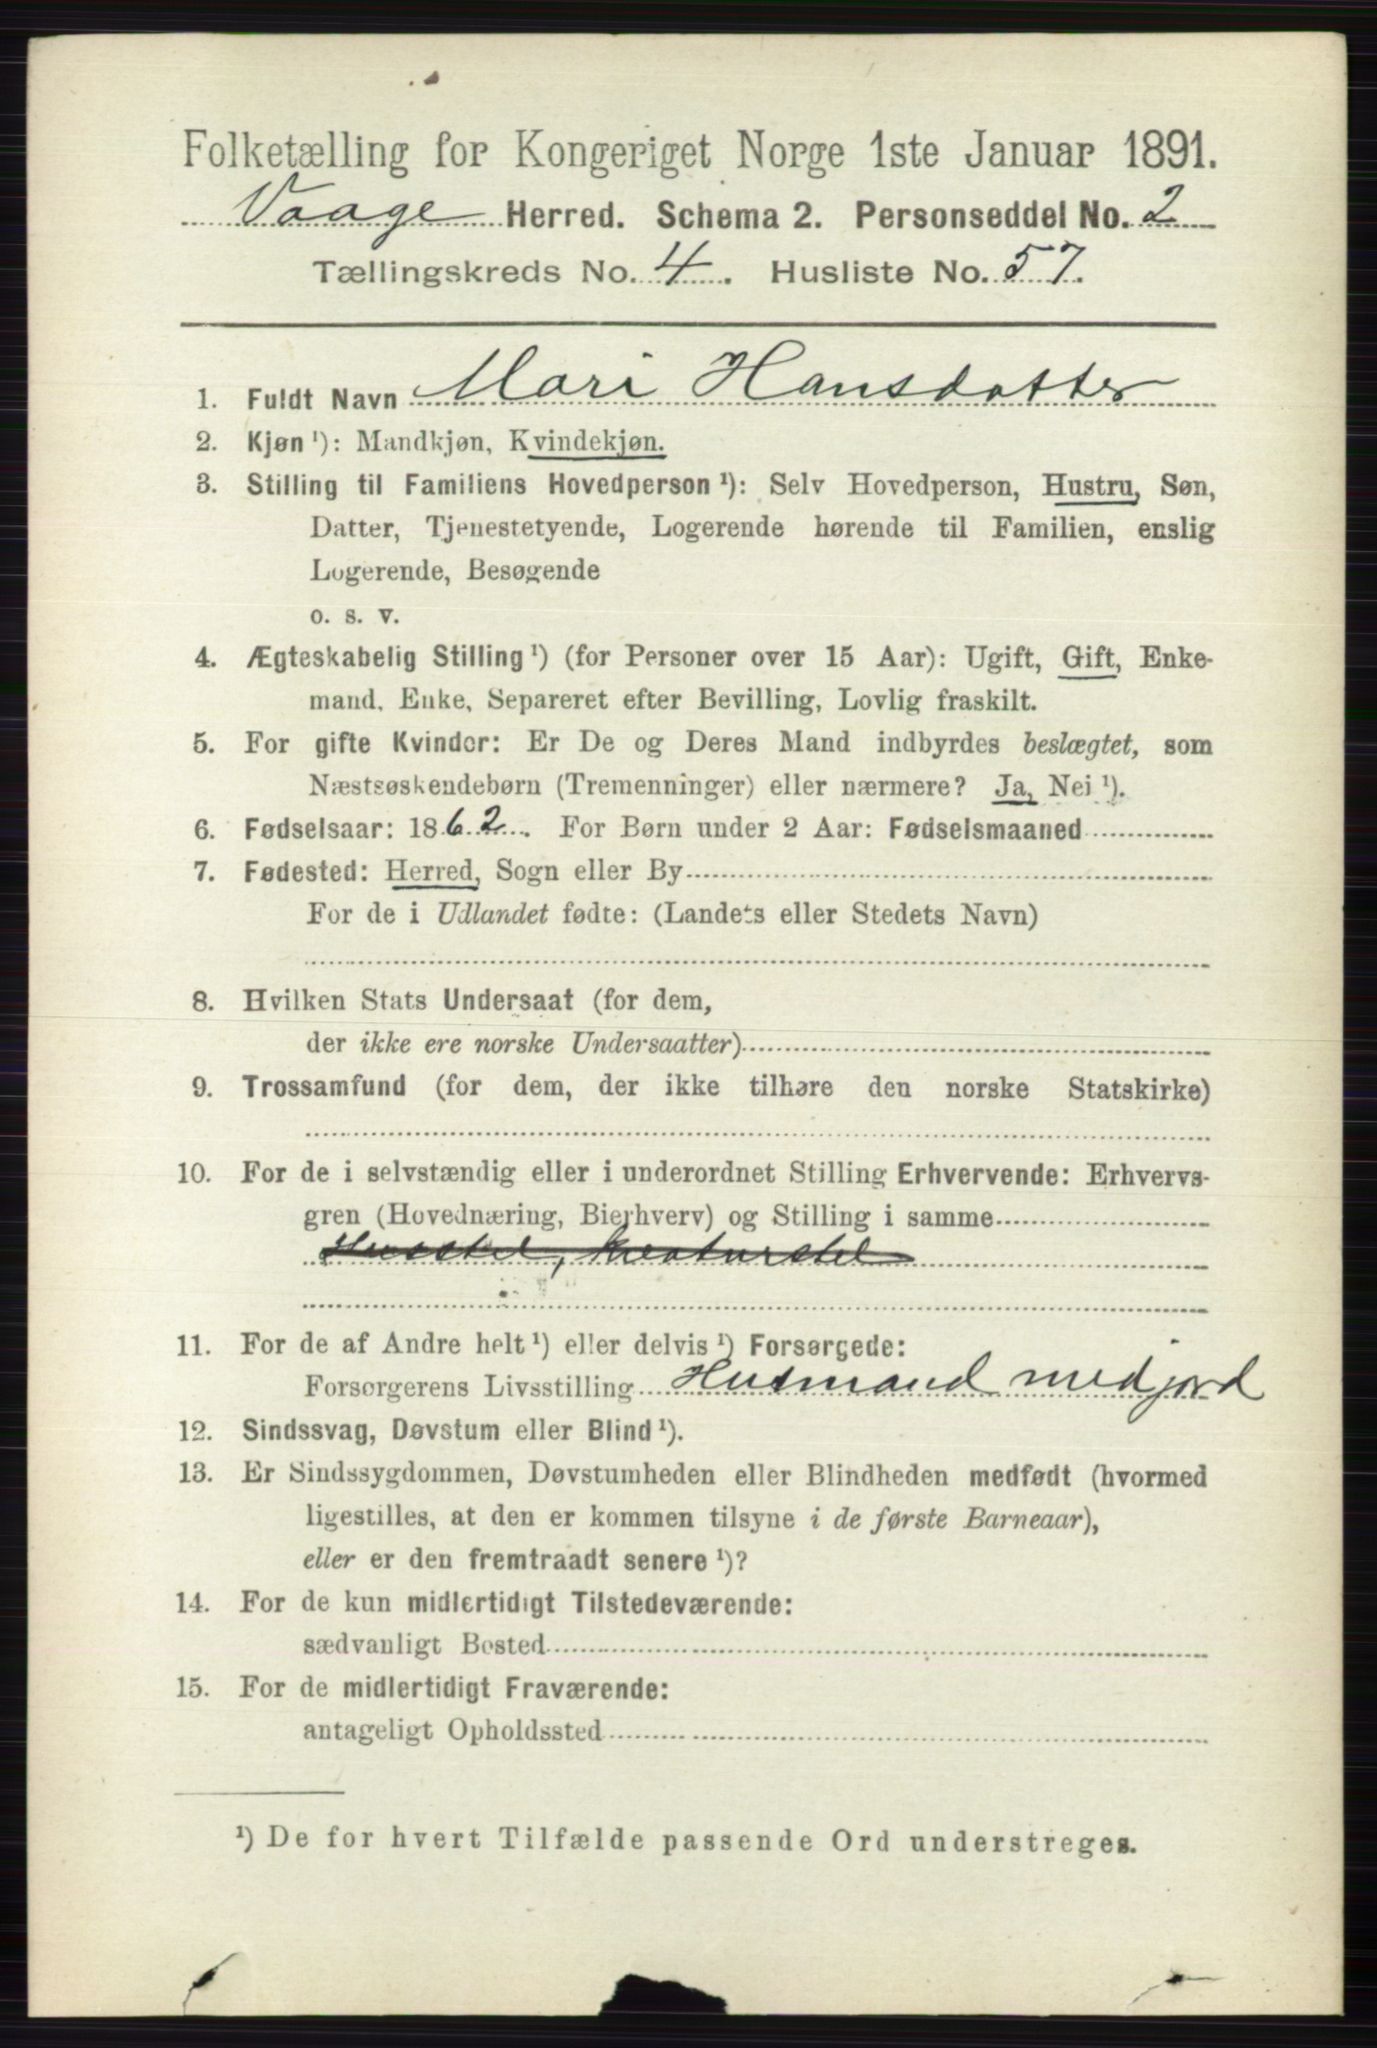 Folketælling for Kongeriget Norge 1ste Januar 1891.
Vaage Herred. Schema 2. Personseddel No. 2
Tællingskreds No. 4. Husliste No. 57.
1. Fuldt Navn Mari Hansdatter
2. Kjøn ¹): Mandkjøn, Kvindekjøn.
3. Stilling til Familiens Hovedperson ¹): Selv Hovedperson, Hustru, Søn,
Datter, Tjenestetyende, Logerende hørende til Familien, enslig
Logerende, Besøgende
o. s. v.
4. Ægteskabelig Stilling ¹) (for Personer over 15 Aar): Ugift, Gift, Enke-
mand, Enke, Separeret efter Bevilling, Lovlig fraskilt.
5. For gifte Kvinder: Er De og Deres Mand indbyrdes beslægtet, som
Næstsøskendebørn (Tremenninger) eller nærmere? Ja, Nei ¹).
6. Fødselsaar: 1862. For Børn under 2 Aar: Fødselsmaaned
7. Fødested: Herred, Sogn eller By
For de i Udlandet fødte: (Landets eller Stedets Navn)
8. Hvilken Stats Undersaat (for dem,
der ikke ere norske Undersaatter)
9. Trossamfund (for dem, der ikke tilhøre den norske Statskirke)
10. For de i selvstændig eller i underordnet Stilling Erhvervende: Erhvervs-
gren (Hovednæring, Bierhverv) og Stilling i samme
Husstel, kreaturstel
11. For de af Andre helt ¹) eller delvis ¹) Forsørgede:
Forsørgerens Livsstilling Husmand med jord
12. Sindssvag, Døvstum eller Blind ¹).
13. Er Sindssygdommen, Døvstumheden eller Blindheden medfødt (hvormed
ligestilles, at den er kommen tilsyne i de første Barneaar),
eller er den fremtraadt senere ¹)?
14. For de kun midlertidigt Tilstedeværende:
sædvanligt Bosted
15. For de midlertidigt Fraværende:
antageligt Opholdssted
¹) De for hvert Tilfælde passende Ord understreges.